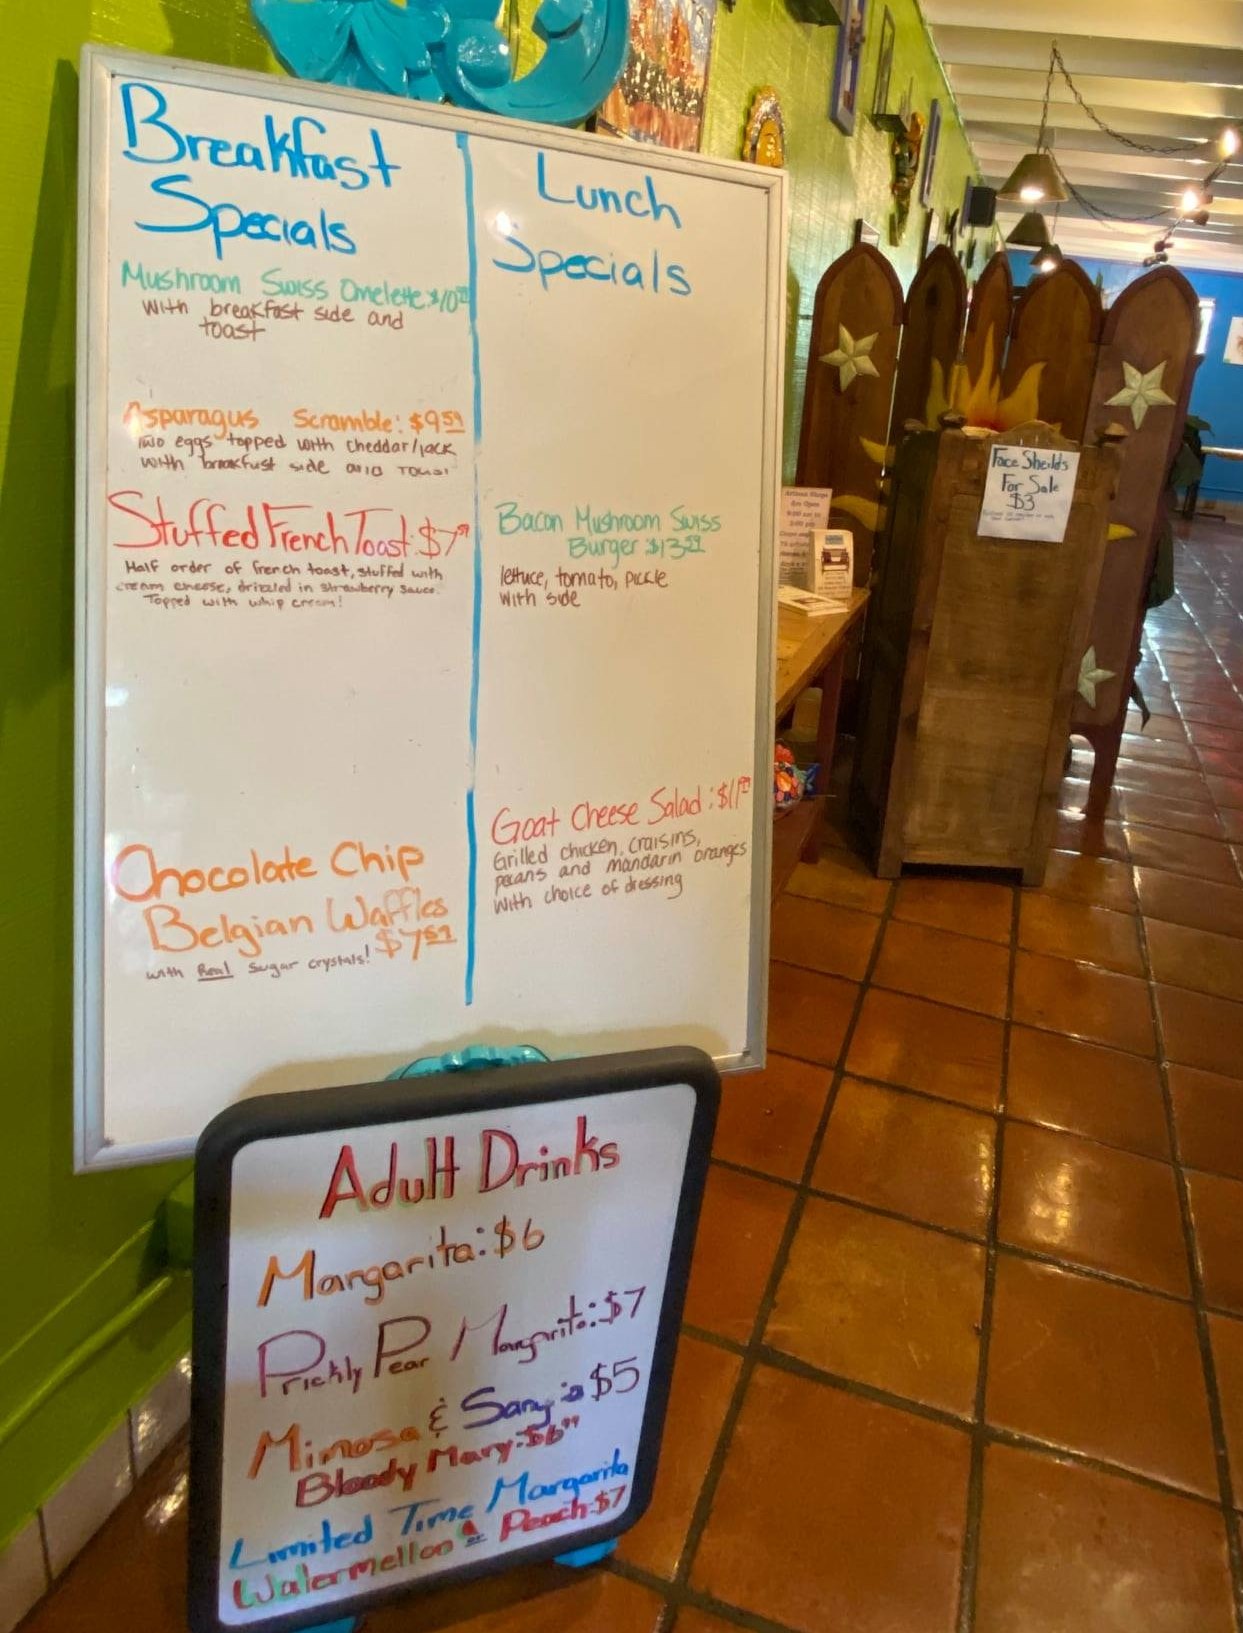 Breakfast
Specials
Mushroom Swiss Omelette: $10
with breakfast side and
toast
Asparagus Scramble: $9.59
Two eggs topped with cheddar/jack
with breakfast side and toast
Stuffed French Toast: $7
Half order of french toast, stuffed with
cream cheese, drizzled in strawberry sauce.
Topped with whip cream!
Chocolate Chip
Belgian Waffles
$7.59
with Real sugar crystals!
Lunch
Specials
Bacon Mushroom Swiss
Burger: $13
lettuce, tomato, pickle
with side
Goat Cheese Salad: $11
Grilled chicken, craisins,
pecans and mandarin oranges
with choice of dressing
Face Sheilds
For Sale
$3
Adult Drinks
Margarita: $6
Prickly Pear Margarita: $7
Mimosa & $5
Bloody Mary: $6.99
Limited Time Margarita
Watermellon or Peach: $7